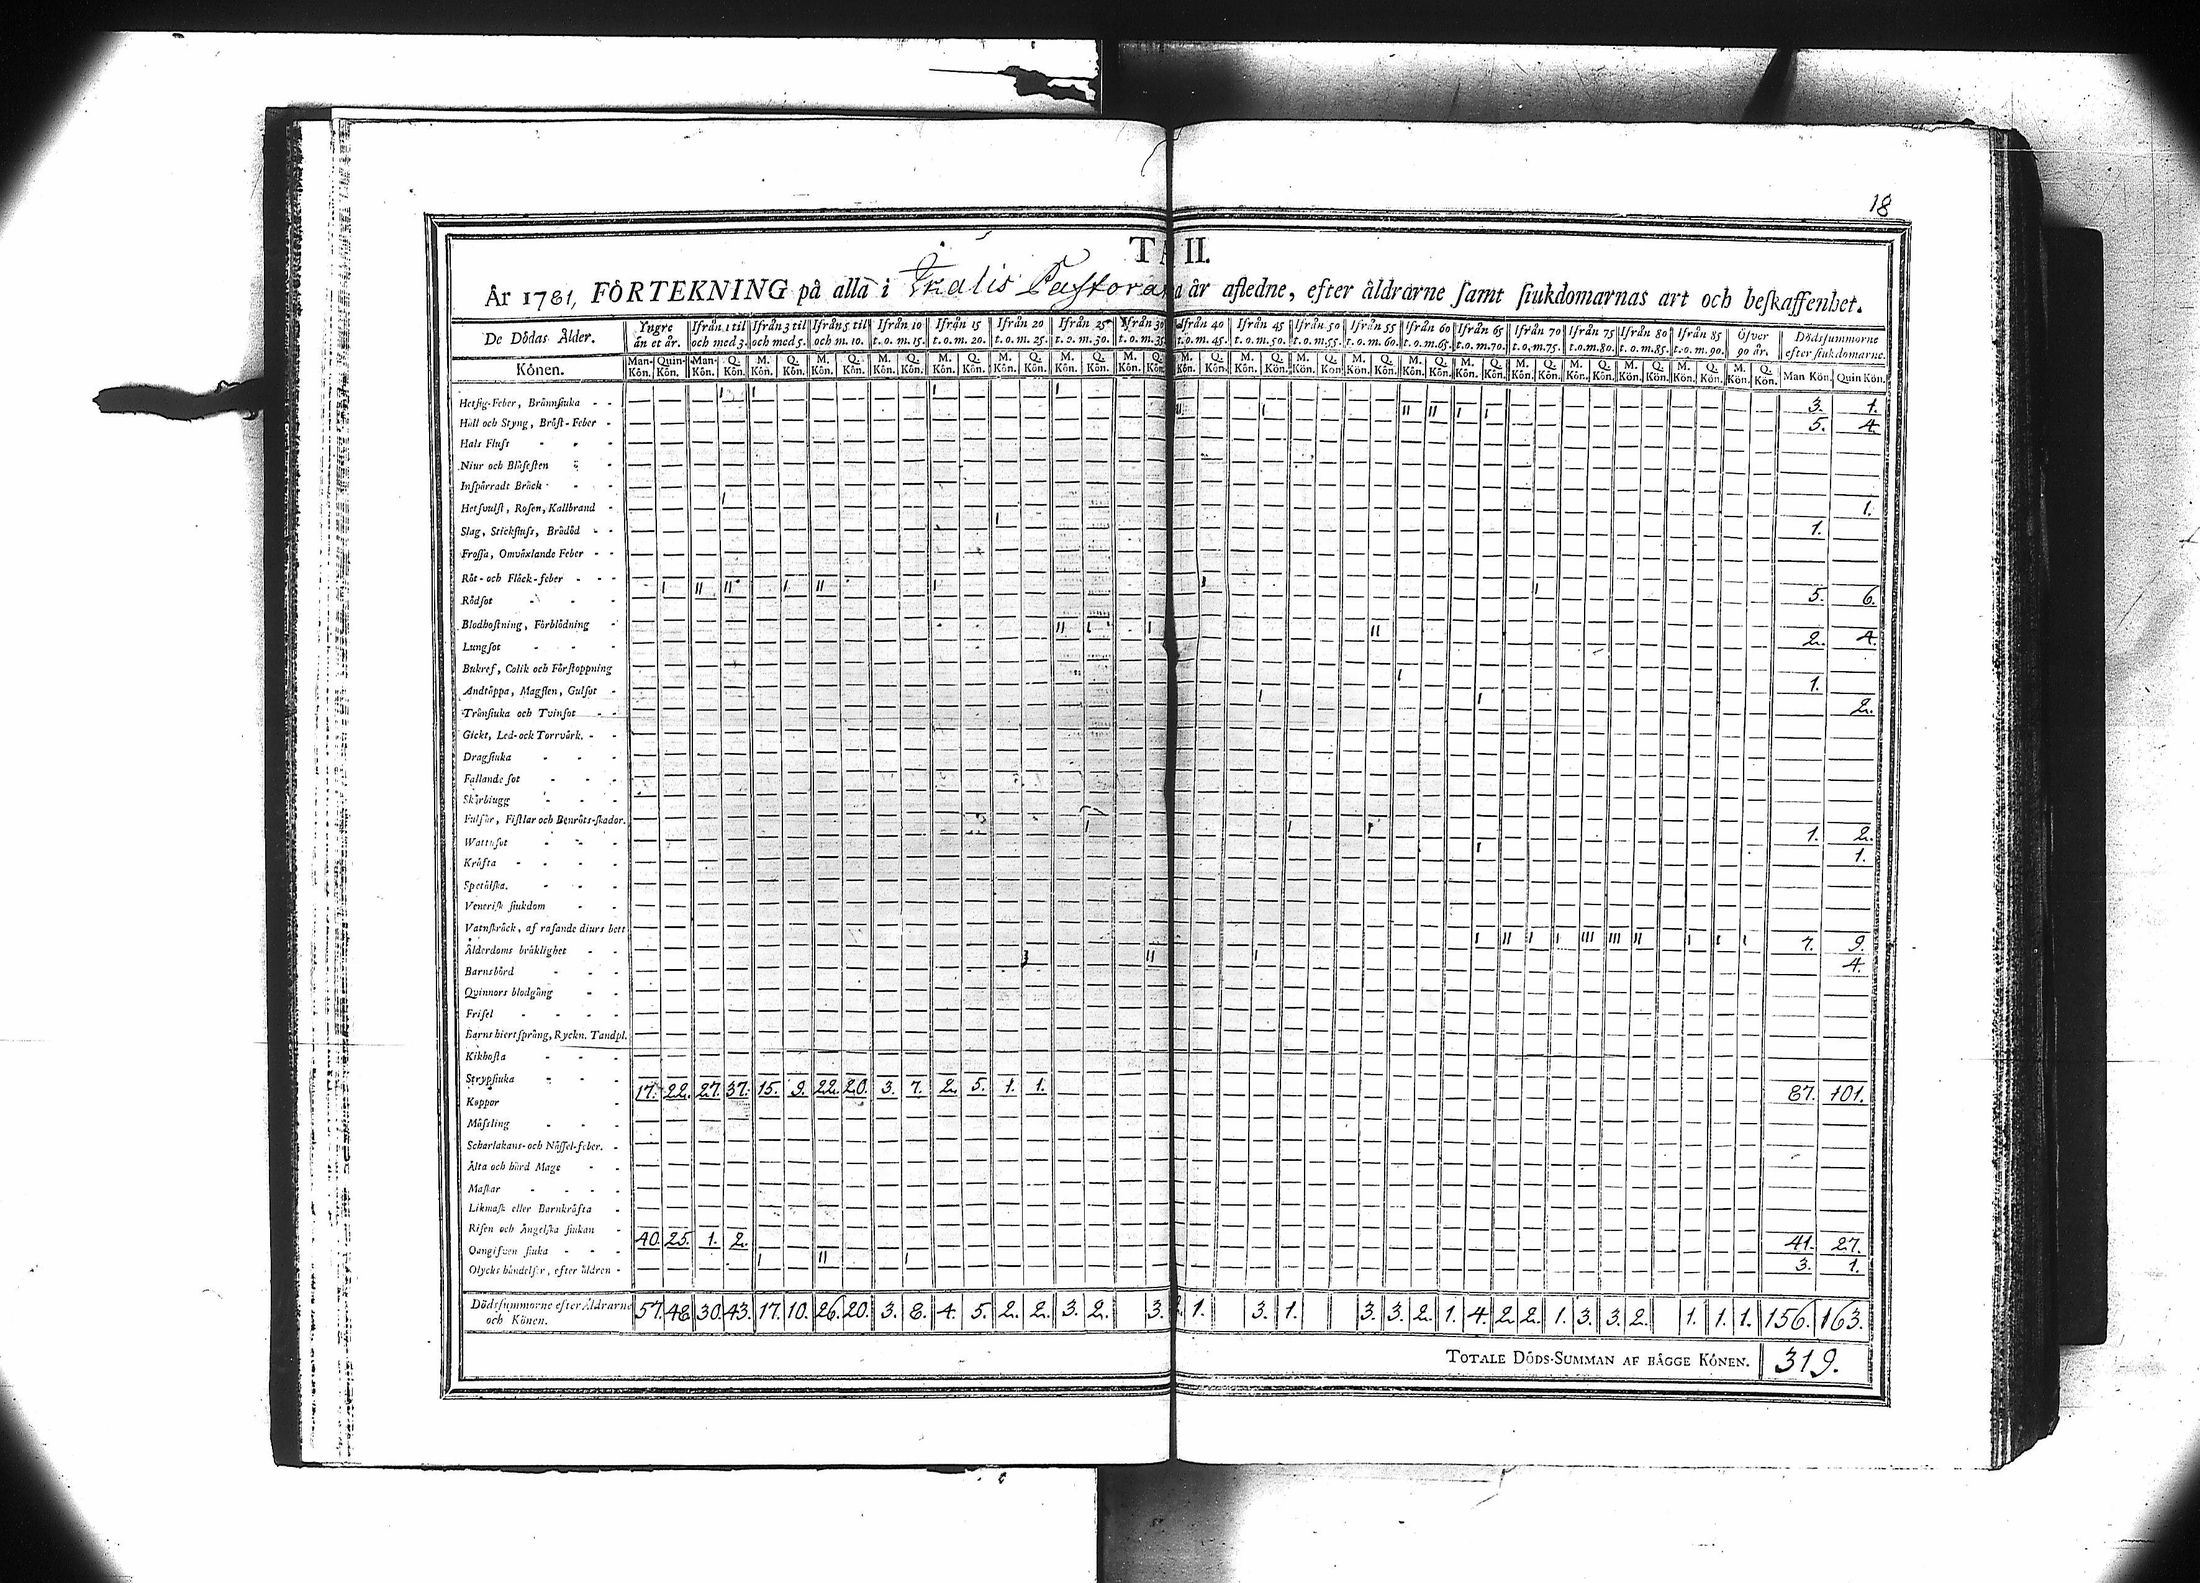 18
TA II.
År 1781, FÖRTEKNING på alla i Ikalis Pastorat år afledne, efter åldrarne samt siukdomarnas art och beskaffenhet.
De Dödas Ålder. Yngre än et år. Ifrån 1 til och med 3. Ifrån 3 til och med 5. Ifrån 5 til och m. 10. Ifrån 10 t. o. m. 15. Ifrån 15 t. o. m. 20. Ifrån 20 t. o. m. 25. Ifrån 25 t. o. m. 30. Ifrån 30 t. o. m. 35. Ifrån 40 t. o. m. 45. Ifrån 45 t. o. m. 50. Ifrån 50 t. o. m. 55. Ifrån 55 t. o. m. 60. Ifrån 60 t. o. m. 65. Ifrån 65 t. o. m. 70. Ifrån 70 t. o. m. 75. Ifrån 75 t. o. m. 80. Ifrån 80 t. o. m. 85. Ifrån 85 t. o. m. 90. Öfver 90 år. Dödssummorne efter siukdomarne.
Könen. Man-Kön. Quin-Kön. Man-Kön. Q. Kön. M. Kön. Q. Kön. M. Kön. Q. Kön. M. Kön. Q. Kön. M. Kön. Q. Kön. M. Kön. Q. Kön. M. Kön. Q. Kön. M. Kön. Q. Kön. M. Kön. Q. Kön. M. Kön. Q. Kön. M. Kön. Q. Kön. M. Kön. Q. Kön. M. Kön. Q. Kön. M. Kön. Q. Kön. M. Kön. Q. Kön. M. Kön. Q. Kön. M. Kön. Q. Kön. M. Kön. Q. Kön. M. Kön. Q. Kön. Man Kön. Quin Kön.
Hetsig-Feber, Brännsiuka - - I I I I 3. 1.
Håll och Styng, Bröst-Feber - II I II II I I 5. 4.
Hals Fluss - - -
Niur och Blåsesten - -
Inspärradt Bråck - - -
Hetsvulst, Rosen, Kallbrand - I 1.
Slag, Stickfluss, Brådöd - - I 1.
Frossa, Omväxlande Feber - -
Röt- och Fläck-feber - - -
Rödsot - - - I II II I II I I I 5. 6.
Blodhostning, Förblödning -
Lungsot - - - II I I II 2. 4.
Bukref, Colik och Förstoppning
Andtäppa, Magsten, Gulsot - I 1.
Trånsiuka och Tvinsot - - I I 2.
Gickt, Led- ock Torrvärk. - -
Dragsiuka - - -
Fallande sot - - -
Skörbiugg - - -
Fulsår, Fistlar och Benröts-skador.
Wattusot - - - I I I 1. 2.
Kräfta - - - - I 1.
Spetälska. - - -
Venerisk siukdom - -
Vatnskräck, af rasande diurs bett
Ålderdoms bräklighet - - I II I I III III II I I I 7. 9.
Barnsbörd - - - I II I 4.
Qvinnors blodgång - -
Frisel - - - -
Barns hiertsprång, Ryckn. Tandpl.
Kikhosta - - -
Strypsiuka - - -
Koppor - 17. 22. 27. 37. 15. 9. 22. 20. 3. 7. 2. 5. 1. 1. 87. 101.
Mässling - - -
Scharlakans- och Nässel-feber. -
Älta och hård Mage - -
Maskar - - - -
Likmask eller Barnkräfta -
Risen och Ängelska siukan -
Oangifven siuka - - - 40. 25. 1. 2. 41. 27.
Olycks händelser, efter åldren - I II I 3. 1.
Dödssummorne efter Åldrarne och Könen. 57. 48. 30. 43. 17. 10. 26. 20. 3. 8. 4. 5. 2. 2. 3. 2. 3. 1. 3. 1. 3. 3. 2. 1. 4. 2. 2. 1. 3. 3. 2. 1. 1. 1. 156. 163.
TOTALE DÖDS-SUMMAN AF BÄGGE KÖNEN. 319.